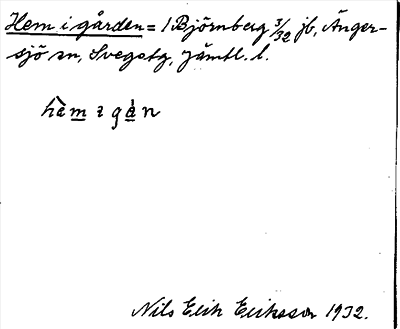 Hem i gården = 1 Björnberg 3/32 jb, Änger-
sjö sn, Svegstg, Jämtl. l.
hèm ɩ gàn
Nils Erik Eriksson 1932.